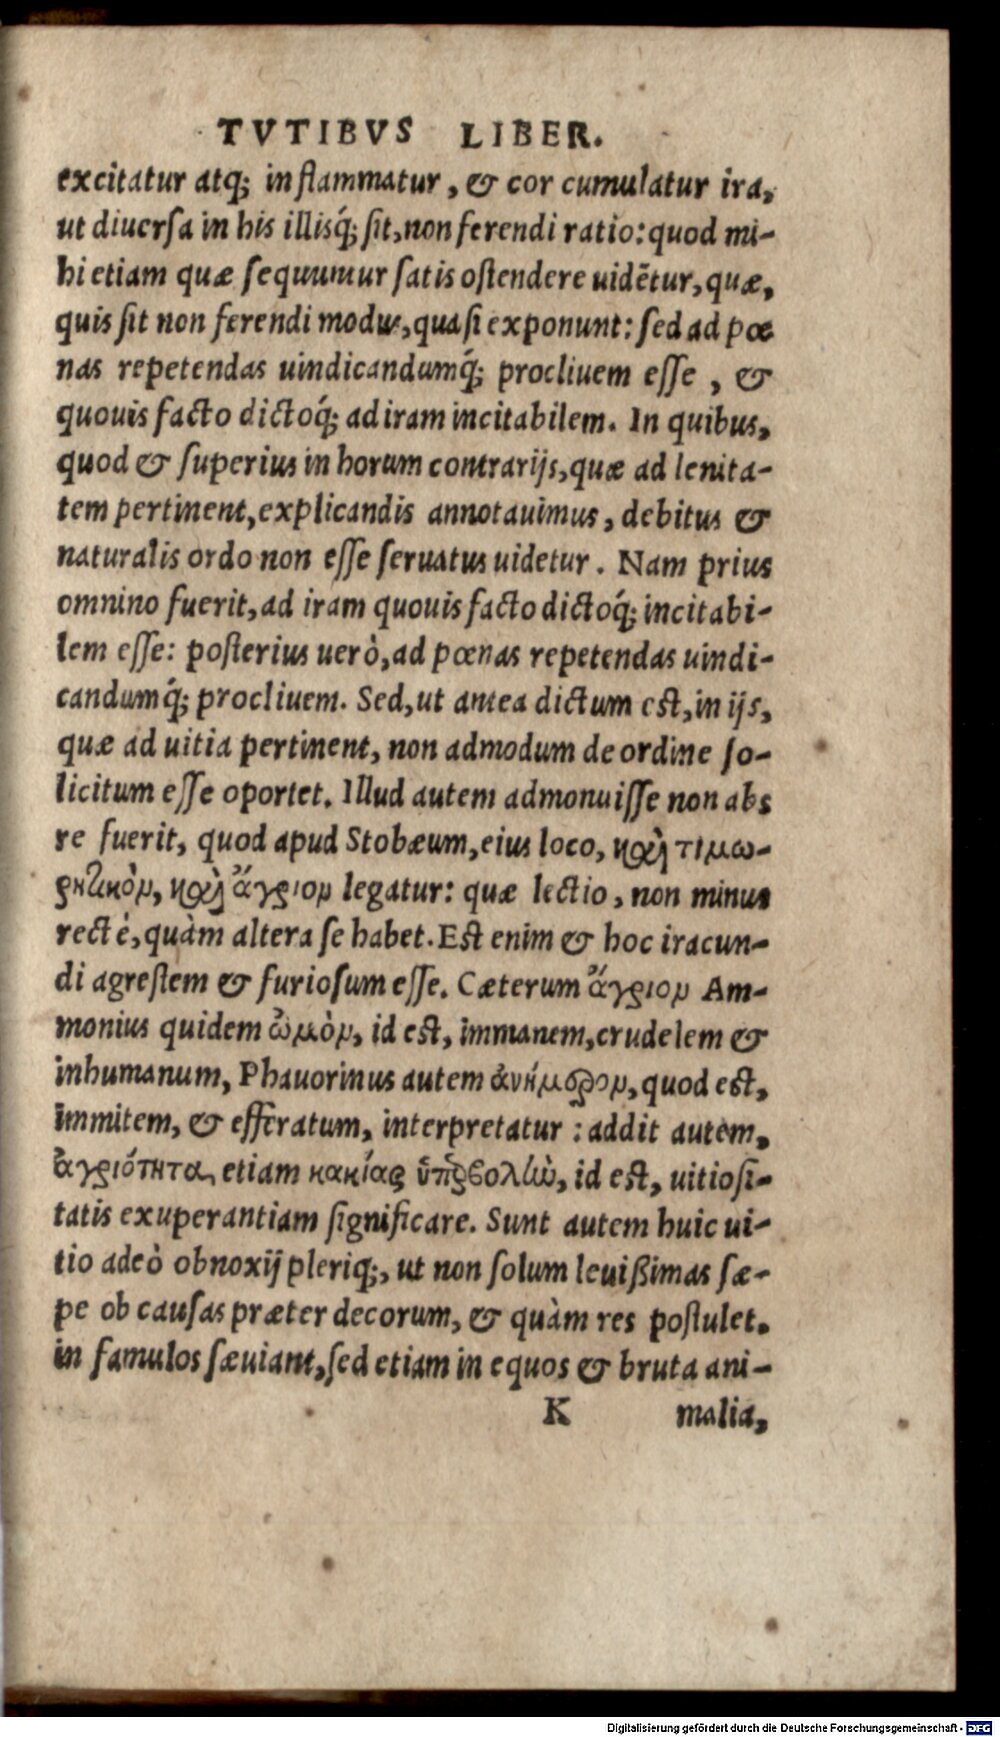 TVTIBVS LIBER.
excitatur atq; inflammatur, & cor cumulatur ira,
ut diuersa in his illisq́; sit, non ferendi ratio: quod mi-
hi etiam quæ sequuntur satis ostendere uidẽtur, quæ,
quis sit non ferendi modus, quasi exponunt: sed ad pœ
nas repetendas uindicandumq́; procliuem esse, &
quouis facto dictoq́; ad iram incitabilem. In quibus,
quod & superius in horum contrarijs, quæ ad lenita-
tem pertinent, explicandis annotauimus, debitus &
naturalis ordo non esse seruatus uidetur. Nam prius
omnino fuerit, ad iram quouis facto dictoq́; incitabi-
lem esse: posterius uerò, ad pœnas repetendas uindi-
candumq́; procliuem. Sed, ut antea dictum est, in ijs,
quæ ad uitia pertinent, non admodum de ordine so-
licitum esse oportet. Illud autem admonuisse non abs
re fuerit, quod apud Stobæum, eius loco, καὶ τιμω-
ρητικὸν, καὶ ἄγριον legatur: quæ lectio, non minus
rectè, quàm altera se habet. Est enim & hoc iracun-
di agrestem & furiosum esse. Cæterum ἄγριον Am-
monius quidem ὠμὸν, id est, immanem, crudelem &
inhumanum, Phauorinus autem ἀνήμερον, quod est,
immitem, & efferatum, interpretatur: addit autem,
ἀγριότητα, etiam κακίας ὑπερβολὴν, id est, uitiosi-
tatis exuperantiam significare. Sunt autem huic ui-
tio adeò obnoxij pleriq;, ut non solum leuißimas sæ-
pe ob causas præter decorum, & quàm res postulet.
in famulos sæuiant, sed etiam in equos & bruta ani-
K malia,
Digitalisierung gefördert durch die Deutsche Forschungsgemeinschaft - DFG